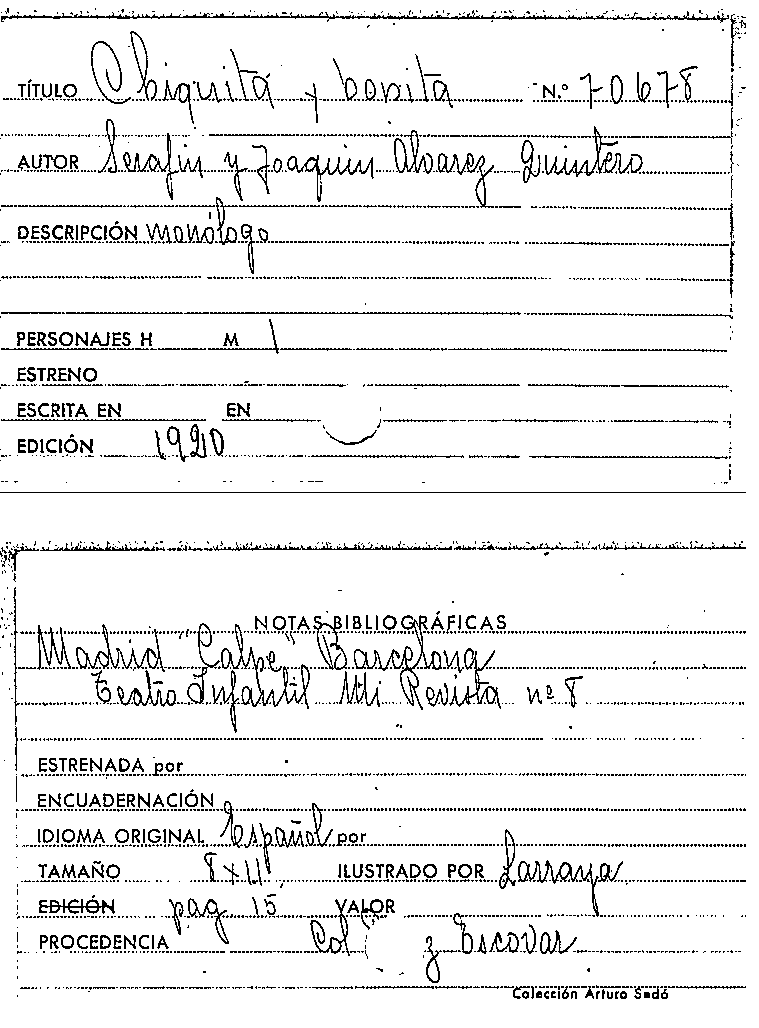 TÍTULO Chiquita y bonita N.º 70678
AUTOR Serafin y Joaquin Alvarez Quintero
DESCRIPCIÓN monólogo
PERSONAJES H M 1
ESTRENO
ESCRITA EN EN
EDICIÓN 1920
NOTAS BIBLIOGRÁFICAS
Madrid "Calpe" Barcelona
Teatro Infantil Mi Revista nº 8
ESTRENADA por
ENCUADERNACIÓN
IDIOMA ORIGINAL Español por
TAMAÑO 8 x 11 ILUSTRADO POR Larraya
EDICIÓN pag 15 VALOR
PROCEDENCIA Col z Escovar
Colección Arturo Sedó